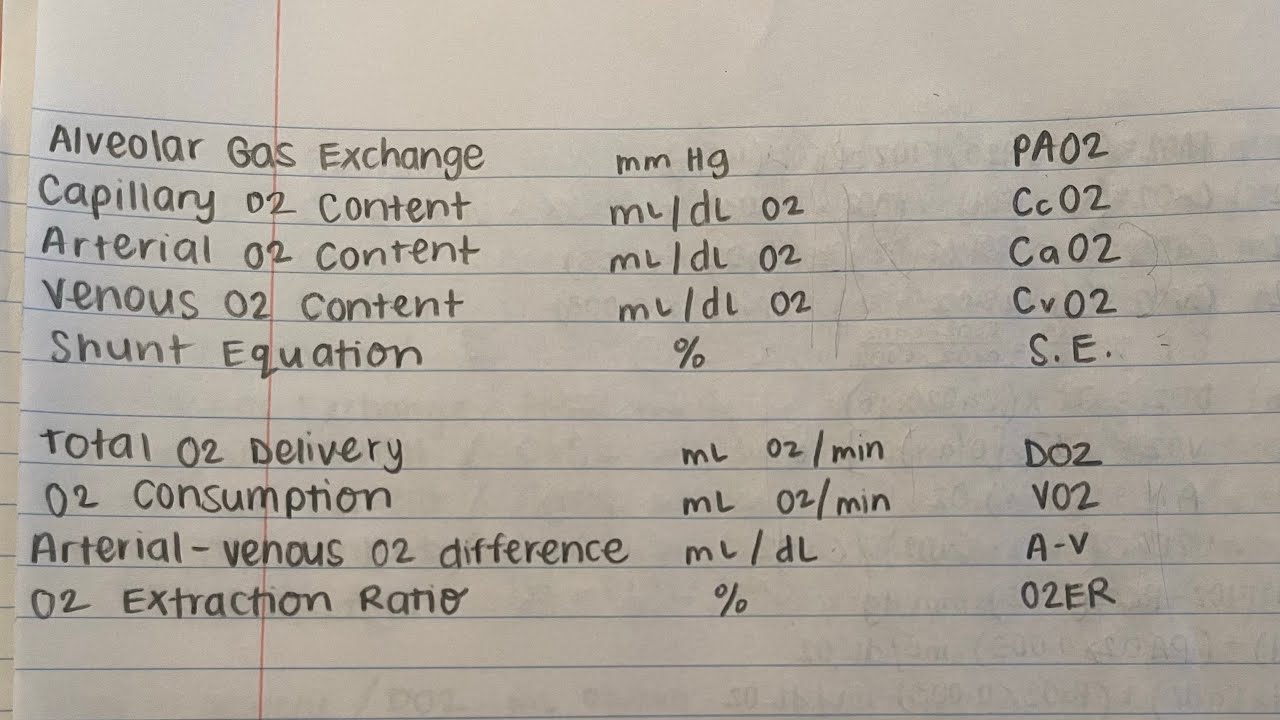 Alveolar Gas Exchange mm Hg PAO2
Capillary O2 Content mL/dL O2 CcO2
Arterial O2 Content mL/dL O2 CaO2
Venous O2 Content mL/dL O2 CvO2
Shunt Equation % S.E.
Total O2 Delivery mL O2/min DO2
O2 Consumption mL O2/min VO2
Arterial-venous O2 difference mL/dL A-V
O2 Extraction Ratio % O2ER